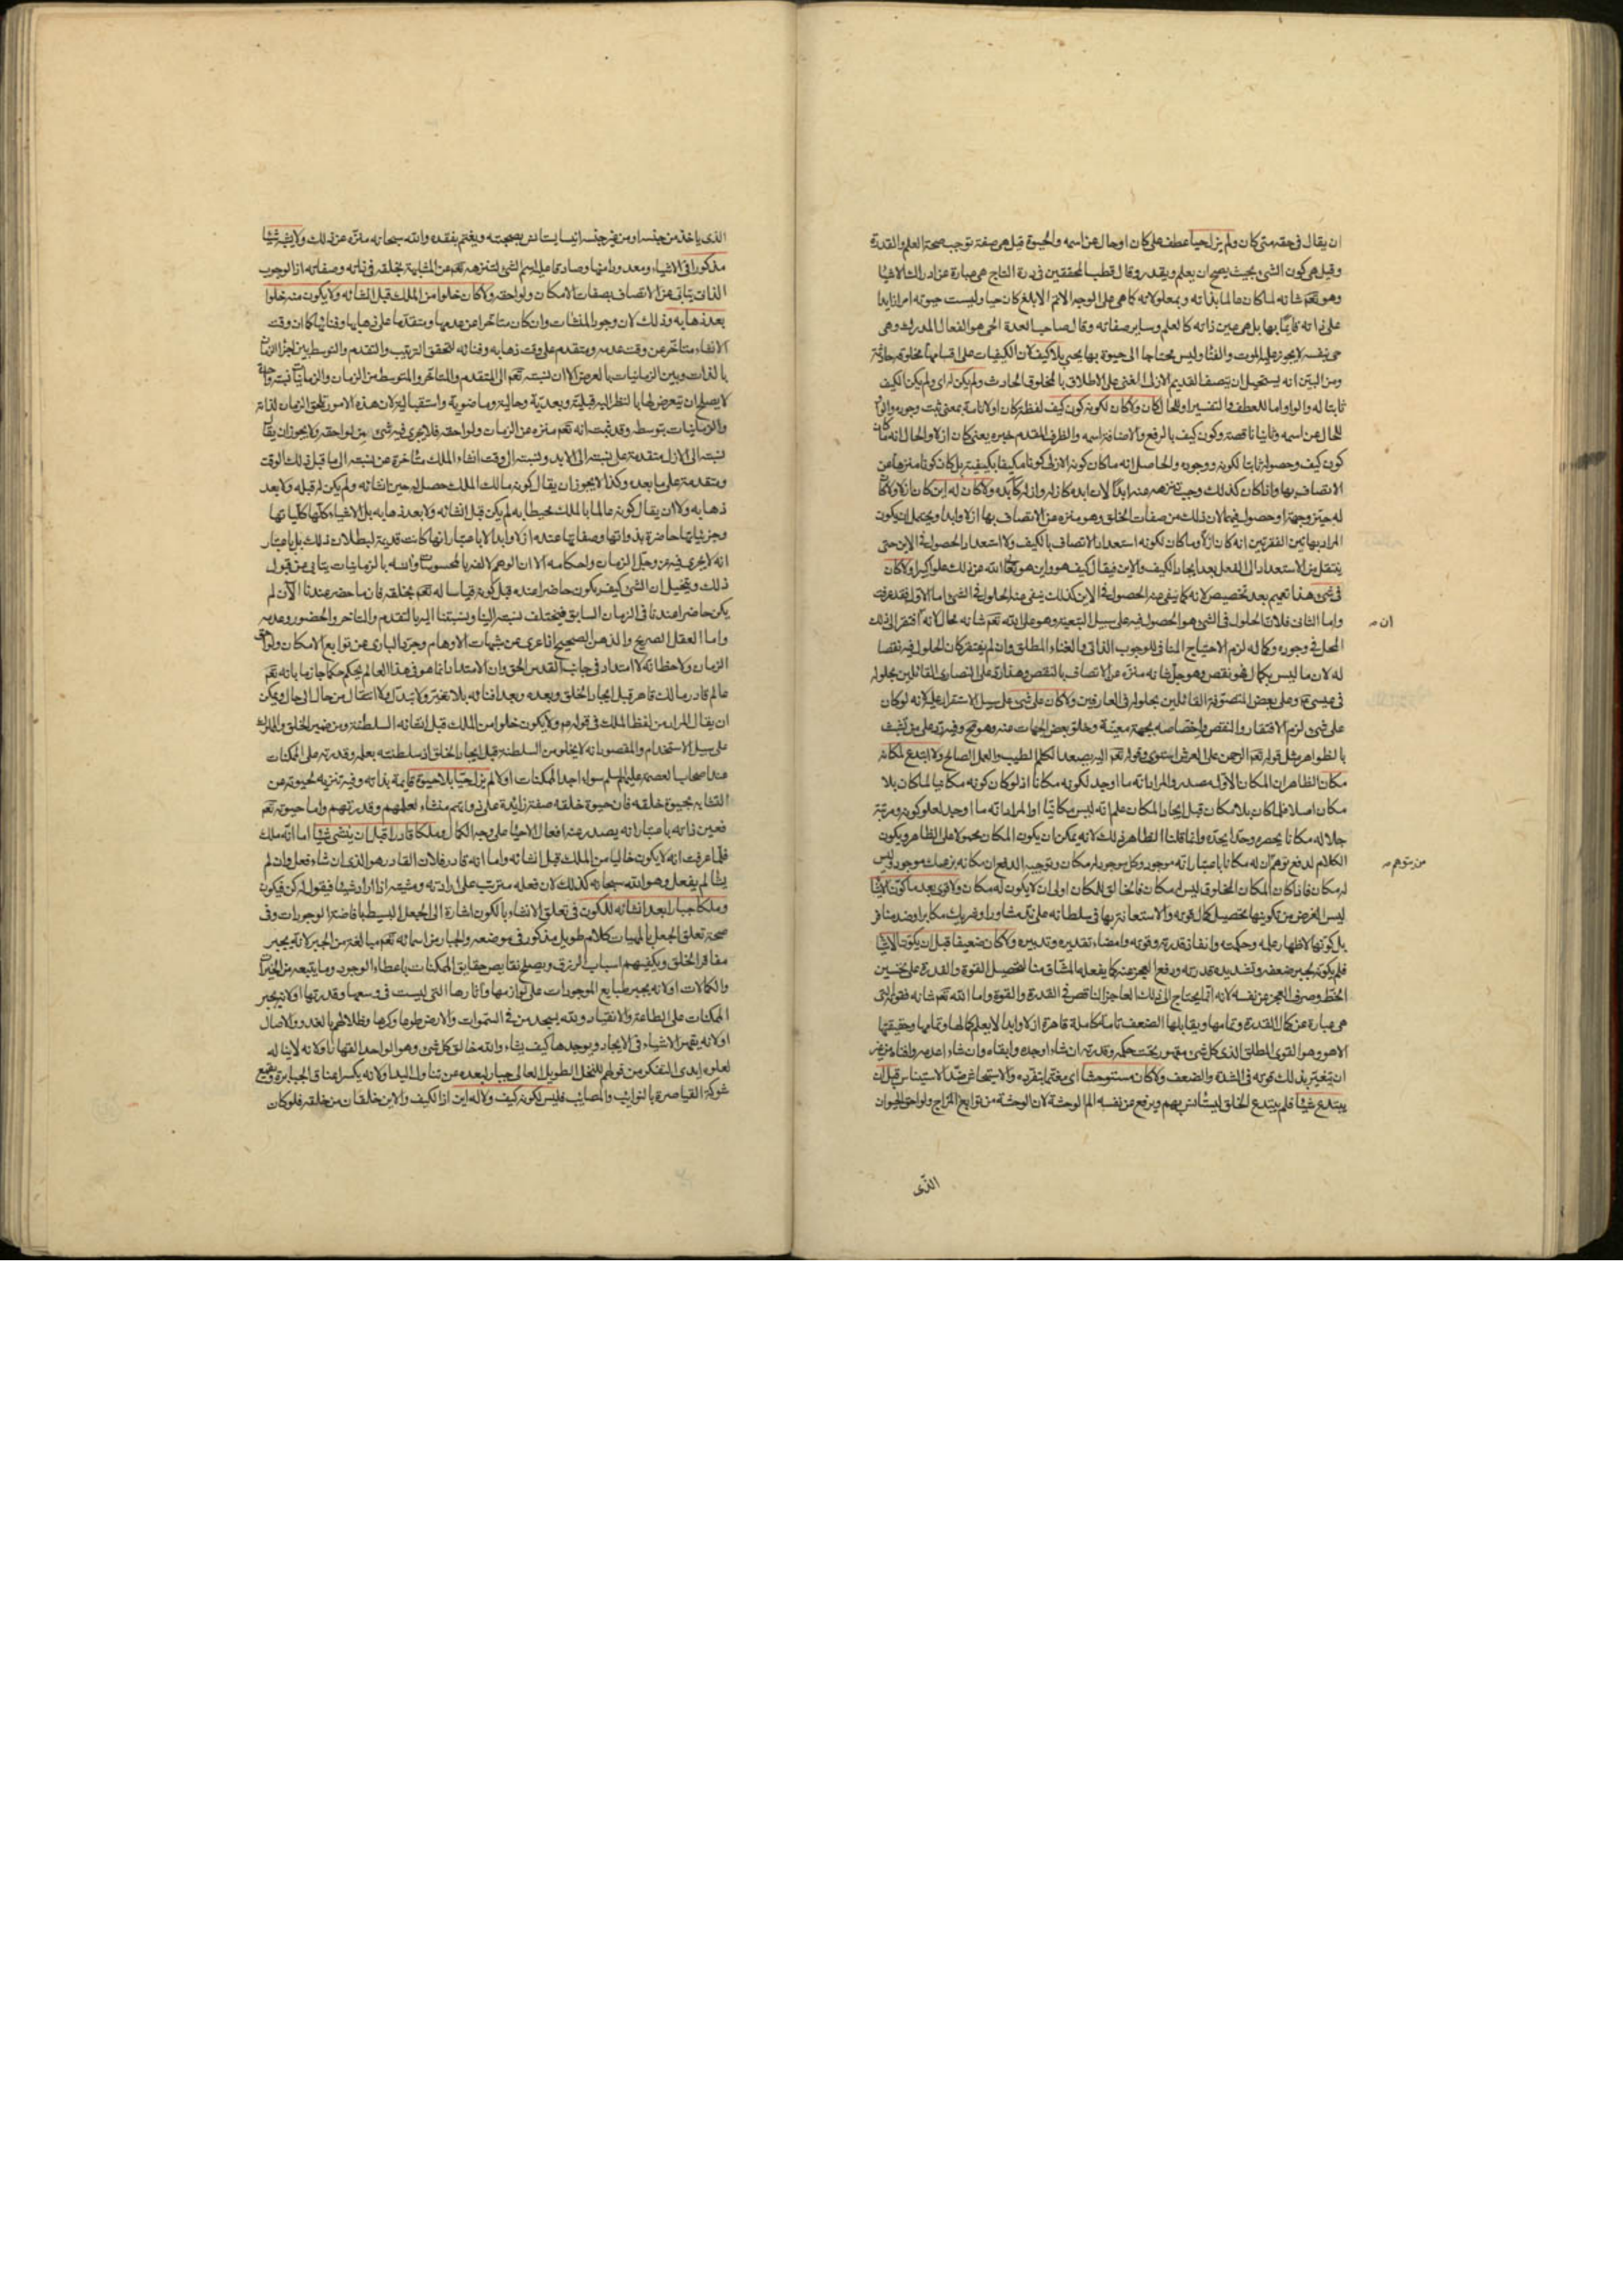 ان يقال في حقه متى كان ولم يزل حيا عطف على كان او حال عن اسمه والحيوة قيل هى صفة توجب صحة العلم والقدرة
وقيل هى كون الشئ بحيث يصح ان يعلم ويقدر وقال قطب المحققين فى درة التاج هى عبارة عن ادراك الاشيا
وهو تعم شانه لما كان عالما بذاته و بمعلولاته كما هى على الوجه الاتم الابلغ كان حيا وليست حيوته امرا زايدا
على ذاته قايما بها بل هى عين ذاته كالعلم وساير صفاته وقال صاحب العدة الحى هو الفعال المدرك وهى
حى بنفسه لا يجوز عليه الموت والفنا وليس محتاجا الى حيوة بها يحيى بلا كيف لان الكيفيات على اقسامها مخلوقه حادثة
ومن البين انه يستحيل ان يتصف القديم الازلى الغنى على الاطلاق بالمخلوق الحادث ولم يكن له اى ولم يكن الكيف
ثابتا له والواو اما للعطف والتفسير او للحال كان ولا كان لكونه كون كيف لفظة كان اولا تامة بمعنى ثبت وجوده والواو
للحال عن اسمه وثانيا ناقصة وكون كيف بالرفع والاضافة اسمه والظرف المقدم خبره يعنى كان ازلا والحال انه ما كان
كون كيف وحصوله ثابتا لكونه ووجوده والحاصل انه ما كان كونه الازلى كونا مكيفا بكيفية بل كان كونا منزها عن
الاتصاف بها واذا كان كذلك وجب تنزهه عنه ابدا لان ابده كازله وازله كابده ولا كان له اين كان ازلا ولا كان
له حيز وجهة او حصول فيهما لان ذلك من صفات الخلق وهو منزه عن الاتصاف بها ازلا وابدا ويحتمل ان يكون
المراد بهاتين الفقرتين انه كان ازلا وما كان لكونه استعداد الاتصاف بالكيف ولا استعداد الحصول فى الاين حتى
ينتقل من الاستعداد الى الفعل بعد ايجاد الكيف والاين فيقال كيف هو واين هو تعالى الله عن ذلك علوا كبيرا ولا كان
فى شئ هذا تعميم بعد تخصيص لانه كما ينفى عنه الحصول فى الاين كذلك ينفى عنه الحلول فى الشئ اما الاول فقد عرفت
واما الثانى فلان الحلول فى الشئ هو الحصول فيه على سبيل التبعية وهو على الله تعم شانه محال لانه ان افتقر الى ذلك
المحل فى وجوده وكماله لزم الاحتياج المنافى للوجوب الذاتى والغناء المطلق وان لم يفتقر كان الحلول فيه نقصا
له لان ما ليس بكمال فهو نقص وهو جل شانه منزه عن الاتصاف بالنقص وهذا رد على النصارى القائلين بحلوله
فى عيسى وعلى بعض المتصوفة القائلين بحلوله فى العارفين ولا كان على شئ على سبيل الاستقرار عليه لانه لو كان
على شئ لزم الافتقار والنقص واختصاصه بجهة معينة وخلو بعض الجهات عنه وهو مح وفيه رد على من تشبث
بالظواهر مثل قوله تعم الرحمن على العرش استوى وقوله تعم اليه يصعد الكلم الطيب والعمل الصالح ولا ابتدع لمكانه
مكانا الظاهر ان المكان الاول مصدر والمراد انه ما اوجد لكونه مكانا اذ لو كان كونه مكانيا لما كان بلا
مكان اصلا فلما كان بلا مكان قبل ايجاد المكان علم انه ليس مكانيا او المراد انه ما اوجد لعلو كونه ومرتبة
جلاله مكانا يحصره وحدا يحده وانما قلنا الظاهر ذلك لانه يمكن ان يكون المكان محمولا على الظاهر ويكون
الكلام لدفع توهم من يتوهم ان له مكانا باعتبار انه موجود وكل موجود له مكان وتوجيه الدفع ان مكانه موجود وليس
له مكان فاذا كان المكان المخلوق ليس له مكان فالخالق للمكان اولى ان لا يكون له مكان ولا قوى بعد ما كون الاشيا
ليس الغرض من تكوينها تحصيل كمال قوته والاستعانة بها فى سلطانه على ند مشاور او شريك مكابر او ضد منافر
بل كونها لاظهار علمه وحكمته وانفاذ قدرته وقوته وامضاء تقديره وتدبيره ولا كان ضعيفا قبل ان يكون الاشيا
فلم يكونه لجبر ضعفه وتشديد قدرته ورفع العجز عنه كما يفعله المشاق منا لتحصيل القوة والقدرة على تحسين
الخط وصرف العجز عن نفسه لانه انما يحتاج الى ذلك العاجز الناقص فى القدرة والقوة واما الله تعم شانه فقوته التى
هى عبارة عن كمال القدرة وتمامها ويقابلها الضعف تامة كاملة قاهرة ازلا وابدا لا يعلم كمالها وتمامها وحقيقتها
الا هو وهو القوى المطلق الذى كل شئ مقهور تحت حكمه وقدرته ان شاء اوجده وابقاه وان شاء اعدمه وافناه من غير
ان يتغير بذلك قوته فى الشدة والضعف ولا كان مستوحشا اى مغتما بتفرده والاستيحاش ضد الاستيناس قبل ان
يبتدع شيئا فلم يبتدع الخلق ليستانس بهم ويرفع عن نفسه الم الوحشة لان الوحشة من توابع المزاج ولواحق الحيوان
الذى
الذى ياخذ من جنسه او من غير جنسه انيسا يستانس بصحبته ويغتم بفقده والله سبحانه منزه عن ذلك ولا يشبه شيئا
مذكورا فى الاشياء ومعدودا منها وصادقا عليه اسم الشئ لتنزهه تعم عن المشابهة بخلقه فى ذاته وصفاته اذ الوجوب
الذاتى يتابى عن الاتصاف بصفات الامكان ولواحقه ولا كان خلوا من الملك قبل انشائه ولا يكون منه خلوا
بعد ذهابه وذلك لان وجود المنشات وان كان متاخرا عن عدمها ومتقدما على ذهابها وفنائها كما ان وقت
الانشاء متاخر عن وقت عدمه ومتقدم على وقت ذهابه وفنائه لتحقق الترتيب والتقدم والتوسط بين اجزا الزمان
بالذات وبين الزمانيات بالعرض الا ان نسبته تعم الى المتقدم والمتاخر والمتوسط من الزمان والزمانيات نسبة واحدة
لا يصلح ان يتعرض لها بالنظر اليه قبلية وبعدية وحالية وماضوية واستقبالية لان هذه الامور تلحق الزمان لذاته
والزمانيات بتوسطه وقد ثبت انه تعم منزه عن الزمان ولواحقه فلا يجرى فيه شئ من لواحقه ولا يجوز ان يقال
نسبته الى الازل متقدمة على نسبته الى الابد ونسبته الى وقت انشاء الملك متاخرة عن نسبته الى ما قبل ذلك الوقت
ومتقدمة على ما بعده وكذا لا يجوز ان يقال كونه مالك الملك حصل له حين انشائه ولم يكن له قبله ولا بعد
ذهابه ولا ان يقال كونه عالما بالملك محيطا به لم يكن قبل انشائه ولا بعد ذهابه بل الاشياء كلها كلياتها
وجزئياتها حاضرة بذواتها وصفاتها عنده ازلا وابدا لا باعتبار انها كانت قديمة لبطلان ذلك بل باعتبار
انه لا يجرى فيه عز وجل الزمان واحكامه الا ان الوهم لالفه بالمحسوسات وانسه بالزمانيات يتابى عن قبول
ذلك ويتخيل ان الشئ كيف يكون حاضرا عنده قبل كونه قياسا له تعم بخلقه فان ما حضر عندنا الآن لم
يكن حاضرا عندنا فى الزمان السابق فيختلف نسبته الينا ونسبتنا اليه بالتقدم والتاخر والحضور وعدمه
واما العقل الصريح والذهن الصحيح اذا عرى عن شبهات الاوهام وجرد البارى عن توابع الامكان ولواحق
الزمان ولاحظ انه لا امتداد فى جانب القدس الحق وان الامتداد انما هو فى هذا العالم يحكم حكما جازما بانه تعم
عالم قادر مالك قاهر قبل ايجاد الخلق وبعده وبعد افنائه بلا تغير ولا تبدل ولا انتقال من حال الى حال ويمكن
ان يقال المراد من لفظ الملك فى قوله م ولا يكون خلوا من الملك قبل انشائه السلطنة ومن ضمير الخلق والملك
على سبيل الاستخدام والمقصود بانه لا يخلو من السلطنة قبل ايجاد الخلق اذ سلطنته بعلمه وقدرته على الممكنات
عند اصحاب العصمة عليهم السلم سواء اوجد الممكنات او لا لم يزل حيا بلا حيوة قايمة بذاته وفيه تنزيه لحيوته عن
التشابه بحيوة خلقه فان حيوة خلقه صفة زايدة على ذواتهم منشاء لعلمهم وقدرتهم واما حيوته تعم
فعين ذاته باعتبار انه يصدر عنه افعال الاحياء على وجه الكمال وملكا قادرا قبل ان ينشئ شيئا اما انه ملك
فلما عرفت انه لا يكون خاليا من الملك قبل انشائه واما انه قادر فلان القادر هو الذى ان شاء فعل وان لم
يشا لم يفعل وهو الله سبحانه كذلك لان فعله مترتب على ارادته ومشيته اذا اراد شيئا فيقول له كن فيكون
وملكا جبارا بعد انشائه للكون فى تعلق الانشاء بالكون اشارة الى الجعل البسيط بافاضة الوجودات وفى
صحة تعلق الجعل بالمهيات كلام طويل مذكور فى موضعه والجبار من اسمائه تعم مبالغة من الجبر لانه يجبر
مفاقر الخلق ويكفيهم اسباب الرزق ويصلح نقايص حقايق الممكنات باعطاء الوجود وما يتبعه من الخيرات
والكمالات او لانه يجبر طبايع الموجودات على لوازمها واثارها التى ليست فى وسعها وقدرتها او لانه يجبر
الممكنات على الطاعة والانقياد ولله يسجد من فى السموات والارض طوعا وكرها وظلالهم بالغدو والاصال
او لانه يقهر الاشياء فى الايجاد ويوجدها كيف يشاء والله خالق كل شئ وهو الواحد القهار او لانه لا يناله
لعلوه ايدى التفكر من قولهم للنخل الطويل العالى جبار لبعده عن تناول اليد او لانه يكسر اعناق الجبابرة ويضع
شوكة القياصرة بالنوايب والمصايب فليس لكونه كيف ولا له اين اذ الكيف والاين خلقان من خلقه فلو كان